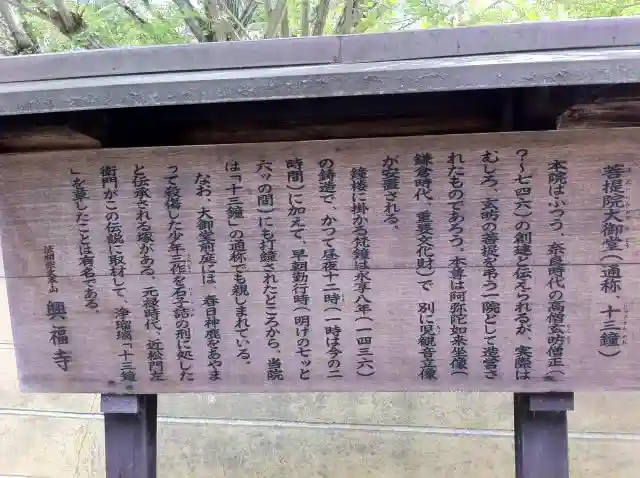 菩提院大御堂(通称、十三鐘)
本院はふつう、奈良時代の高僧玄昉僧正(
?〜七四六)の創建と伝えられるが、実際は
むしろ、玄昉の菩提を弔う一院として造営さ
れたものであろう。本尊は阿弥陀如来坐像(
鎌倉時代、重要文化財)で、別に児観音立像
が安置される。
鐘楼に掛かる梵鐘は永享八年(一四三六)
の鋳造で、かつて昼夜十二時(一時は今の二
時間)に加えて、早朝勤行時(明けの七ッと
六ッの間)にも打鐘されたところから、当院
は「十三鐘」の通称でも親しまれている。
なお、大御堂前庭には、春日神鹿をあやま
って殺傷した少年三作を石子詰の刑に処した
と伝承される塚がある。元禄時代、近松門左
衛門がこの伝説に取材して、浄瑠璃「十三鐘
」を草したことは有名である。
法相宗大本山 興福寺